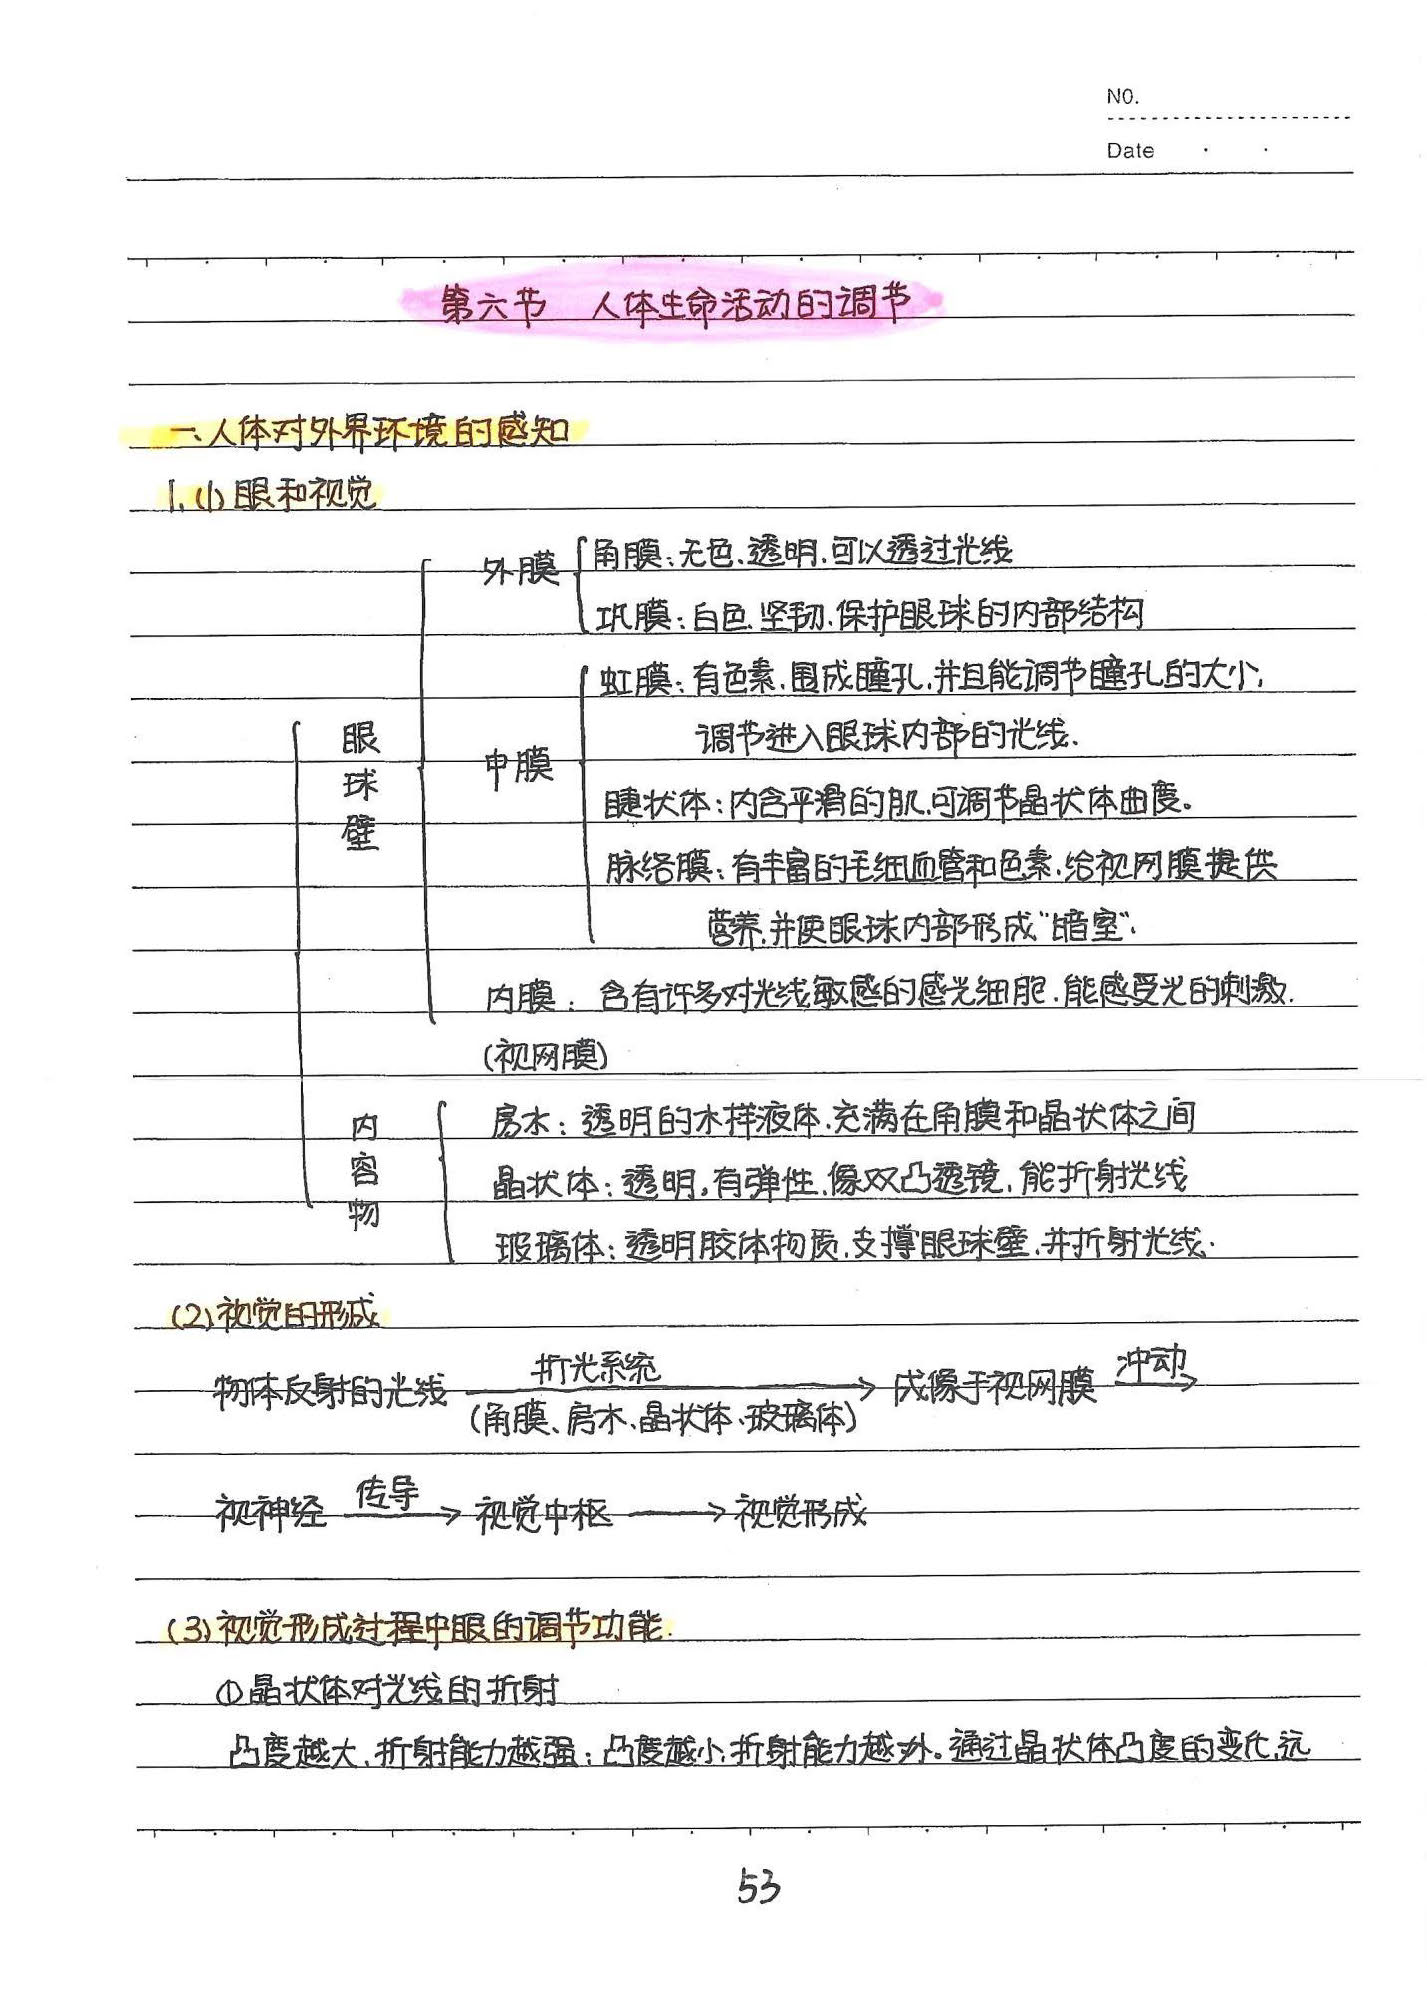 NO.
Date
第六节 人体生命活动的调节
一、人体对外界环境的感知
1.(1)眼和视觉
外膜
角膜:无色、透明,可以透过光线
巩膜:白色、坚韧,保护眼球的内部结构
虹膜:有色素,围成瞳孔,并且能调节瞳孔的大小,
眼球壁
中膜
调节进入眼球内部的光线.
睫状体:内含平滑的肌,可调节晶状体曲度。
脉络膜:有丰富的毛细血管和色素,给视网膜提供
营养,并使眼球内部形成“暗室”.
内膜: 含有许多对光线敏感的感光细胞,能感受光的刺激.
(视网膜)
内容物
房水:透明的水样液体,充满在角膜和晶状体之间
晶状体:透明,有弹性,像双凸透镜,能折射光线
玻璃体:透明胶体物质,支撑眼球壁,并折射光线.
(2)视觉的形成
物体反射的光线 折光系统 → 成像于视网膜 冲动 →
(角膜、房水、晶状体、玻璃体)
视神经 传导 → 视觉中枢 → 视觉形成
(3)视觉形成过程中眼的调节功能.
①晶状体对光线的折射
凸度越大,折射能力越强;凸度越小,折射能力越外。通过晶状体凸度的变化,远
53